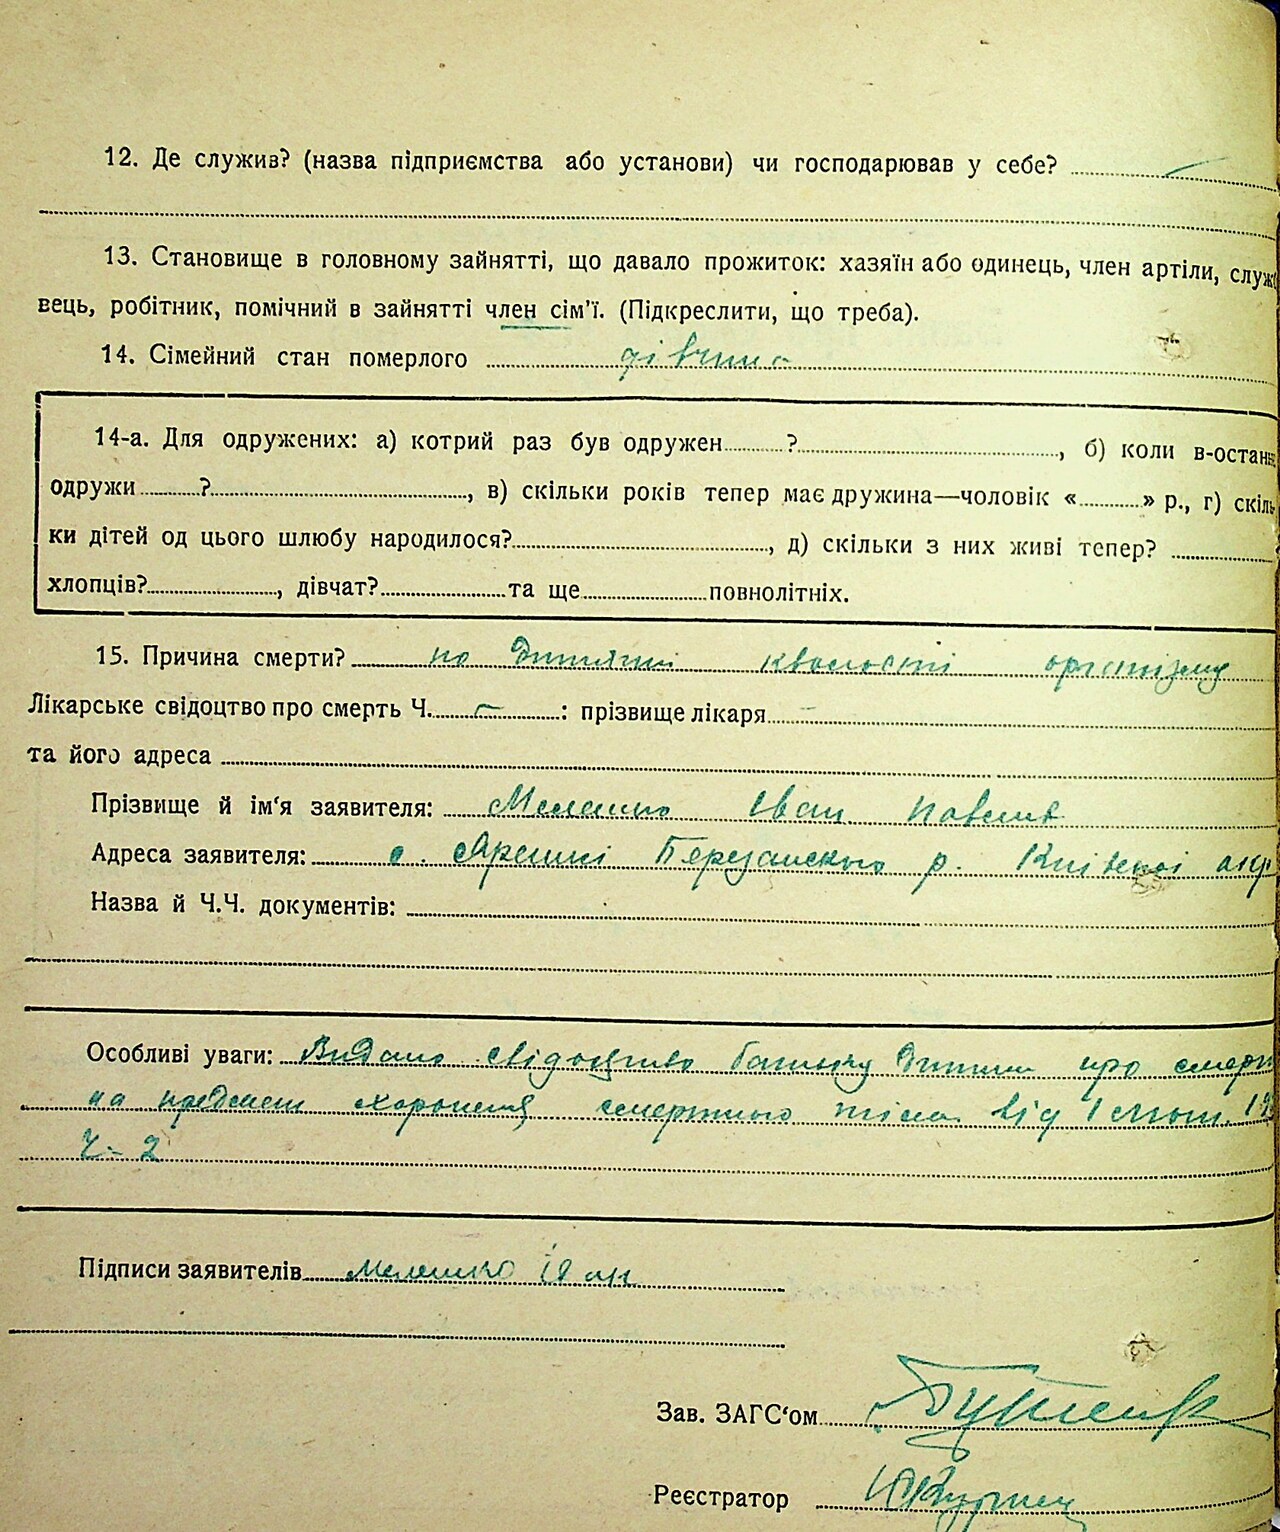 12. Де служив? (назва підприємства або установи) чи господарював у себе?
13. Становище в головному зайнятті, що давало прожиток: хазяїн або одинець, член артіли, служ
вець, робітник, помічний в зайнятті член сім'ї. (Підкреслити, що треба).
14. Сімейний стан померлого дівчина
14-а. Для одружених: а) котрий раз був одружен ?, б) коли в-остан
одружи ?, в) скільки років тепер має дружина—чоловік « » р., г) скіль
ки дітей од цього шлюбу народилося?, д) скільки з них живі тепер?
хлопців?, дівчат? та ще повнолітніх.
15. Причина смерти? по кволості організму
Лікарське свідоцтво про смерть Ч. — : прізвище лікаря —
та його адреса
Прізвище й ім'я заявителя: Мелешко Іван Павлів
Адреса заявителя: с. Ярешкі Березанського р. Київської
Назва й Ч.Ч. документів:
Особливі уваги: Видано свідоцтво батьку дитини про смерть
на предмет смертного тіла від 1
Ч-2
Підписи заявителів Мелешко Іван
Зав. ЗАГС'ом
Реєстратор